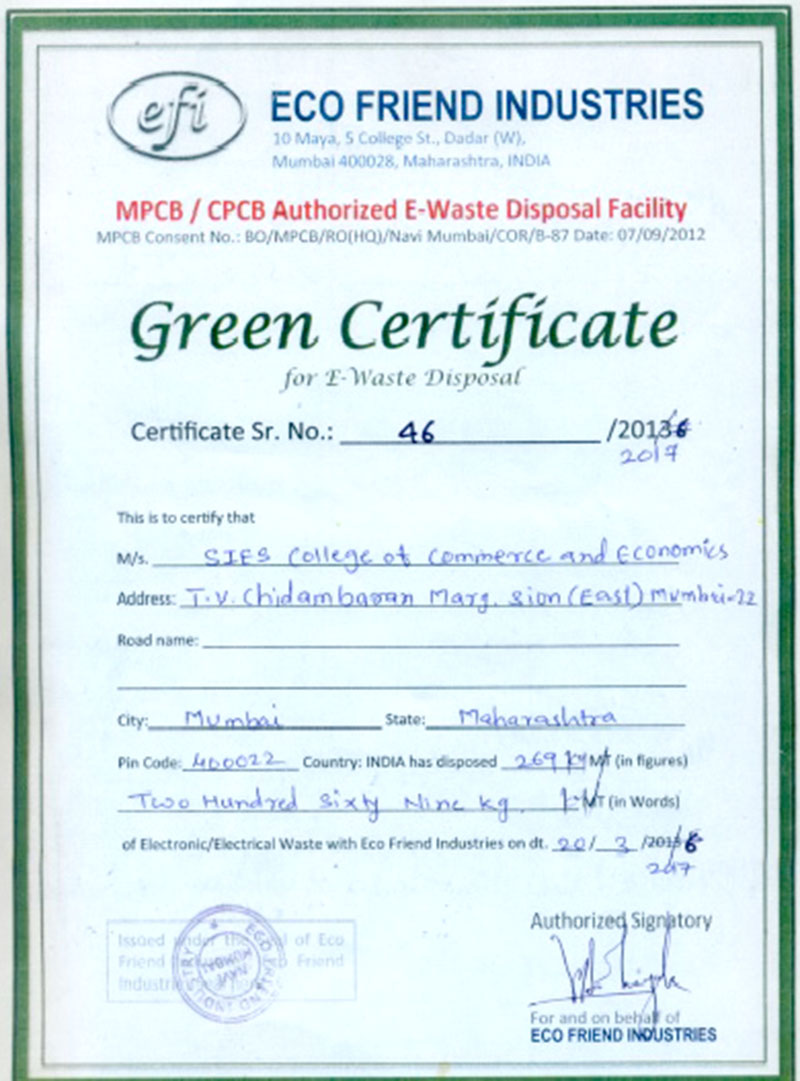 efi
ECO FRIEND INDUSTRIES
10 Maya, 5 College St., Dadar (W),
Mumbai 400028, Maharashtra, INDIA
MPCB / CPCB Authorized E-Waste Disposal Facility
MPCB Consent No.: BO/MPCB/RO(HQ)/Navi Mumbai/COR/B-87 Date: 07/09/2012
Green Certificate
for E-Waste Disposal
Certificate Sr. No.: 46 /2013 6
2017
This is to certify that
M/s. SIES College of Commerce and Economics
Address: T.V. Chidambaran Marg. Sion (East) Mumbai-22
Road name:
City: Mumbai State: Maharashtra
Pin Code: 400022 Country: INDIA has disposed 269 kg MT (in figures)
Two Hundred Sixty Nine kg. MT (in Words)
of Electronic/Electrical Waste with Eco Friend Industries on dt. 20/ 3 /2013 6
2017
Authorized Signatory
Issued under the of Eco
Friend Friend
For and on behalf of
ECO FRIEND INDUSTRIES